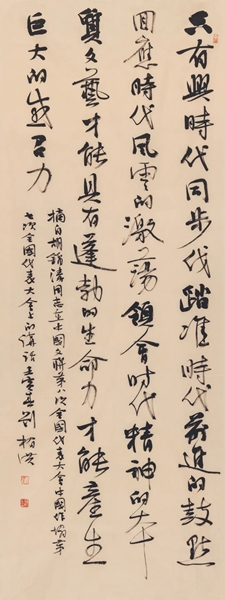 只有與時代同步伐踏准時代前進的鼓點
回應時代風雲的激蕩領會时代精神的本
質文藝才能具有蓬勃的生命力才能產生
巨大的感召力
摘自胡錦濤同志在中國文聯第八次全國代表大会中國作協第
七次全國代表大会上的講話